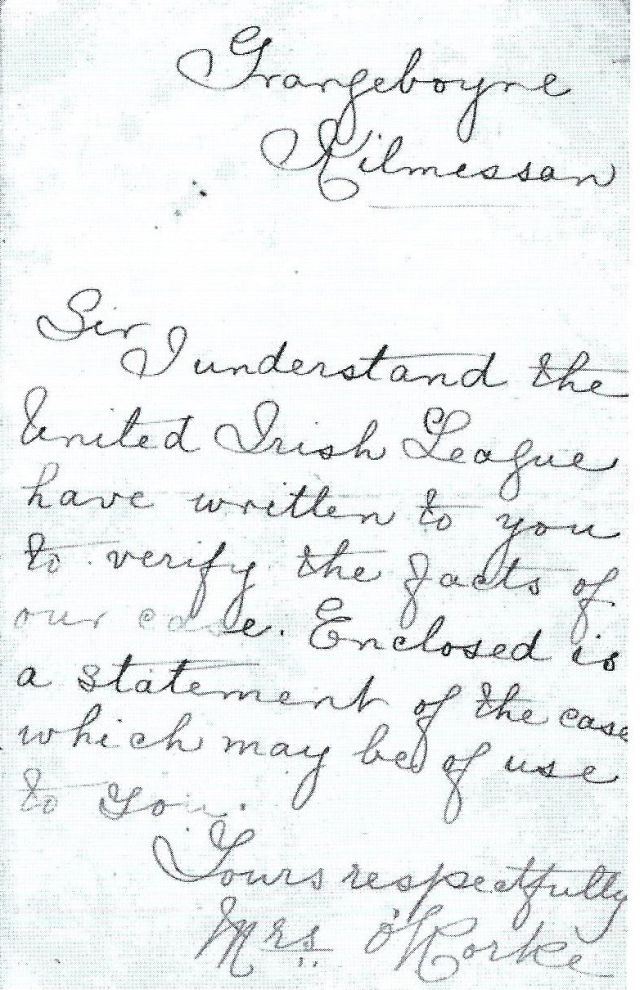 Grangeboyne
Kilmessan
Sir
I understand the
United Irish League
have written to you
to verify the facts of
our case. Enclosed is
a statement of the case
which may be of use
to you.
Yours respectfully
Mrs O'Rorke